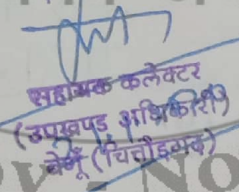 सहायक कलेक्टर
(उपखण्ड अधिकारी)
बेगूँ (चित्तौड़गढ़)
No